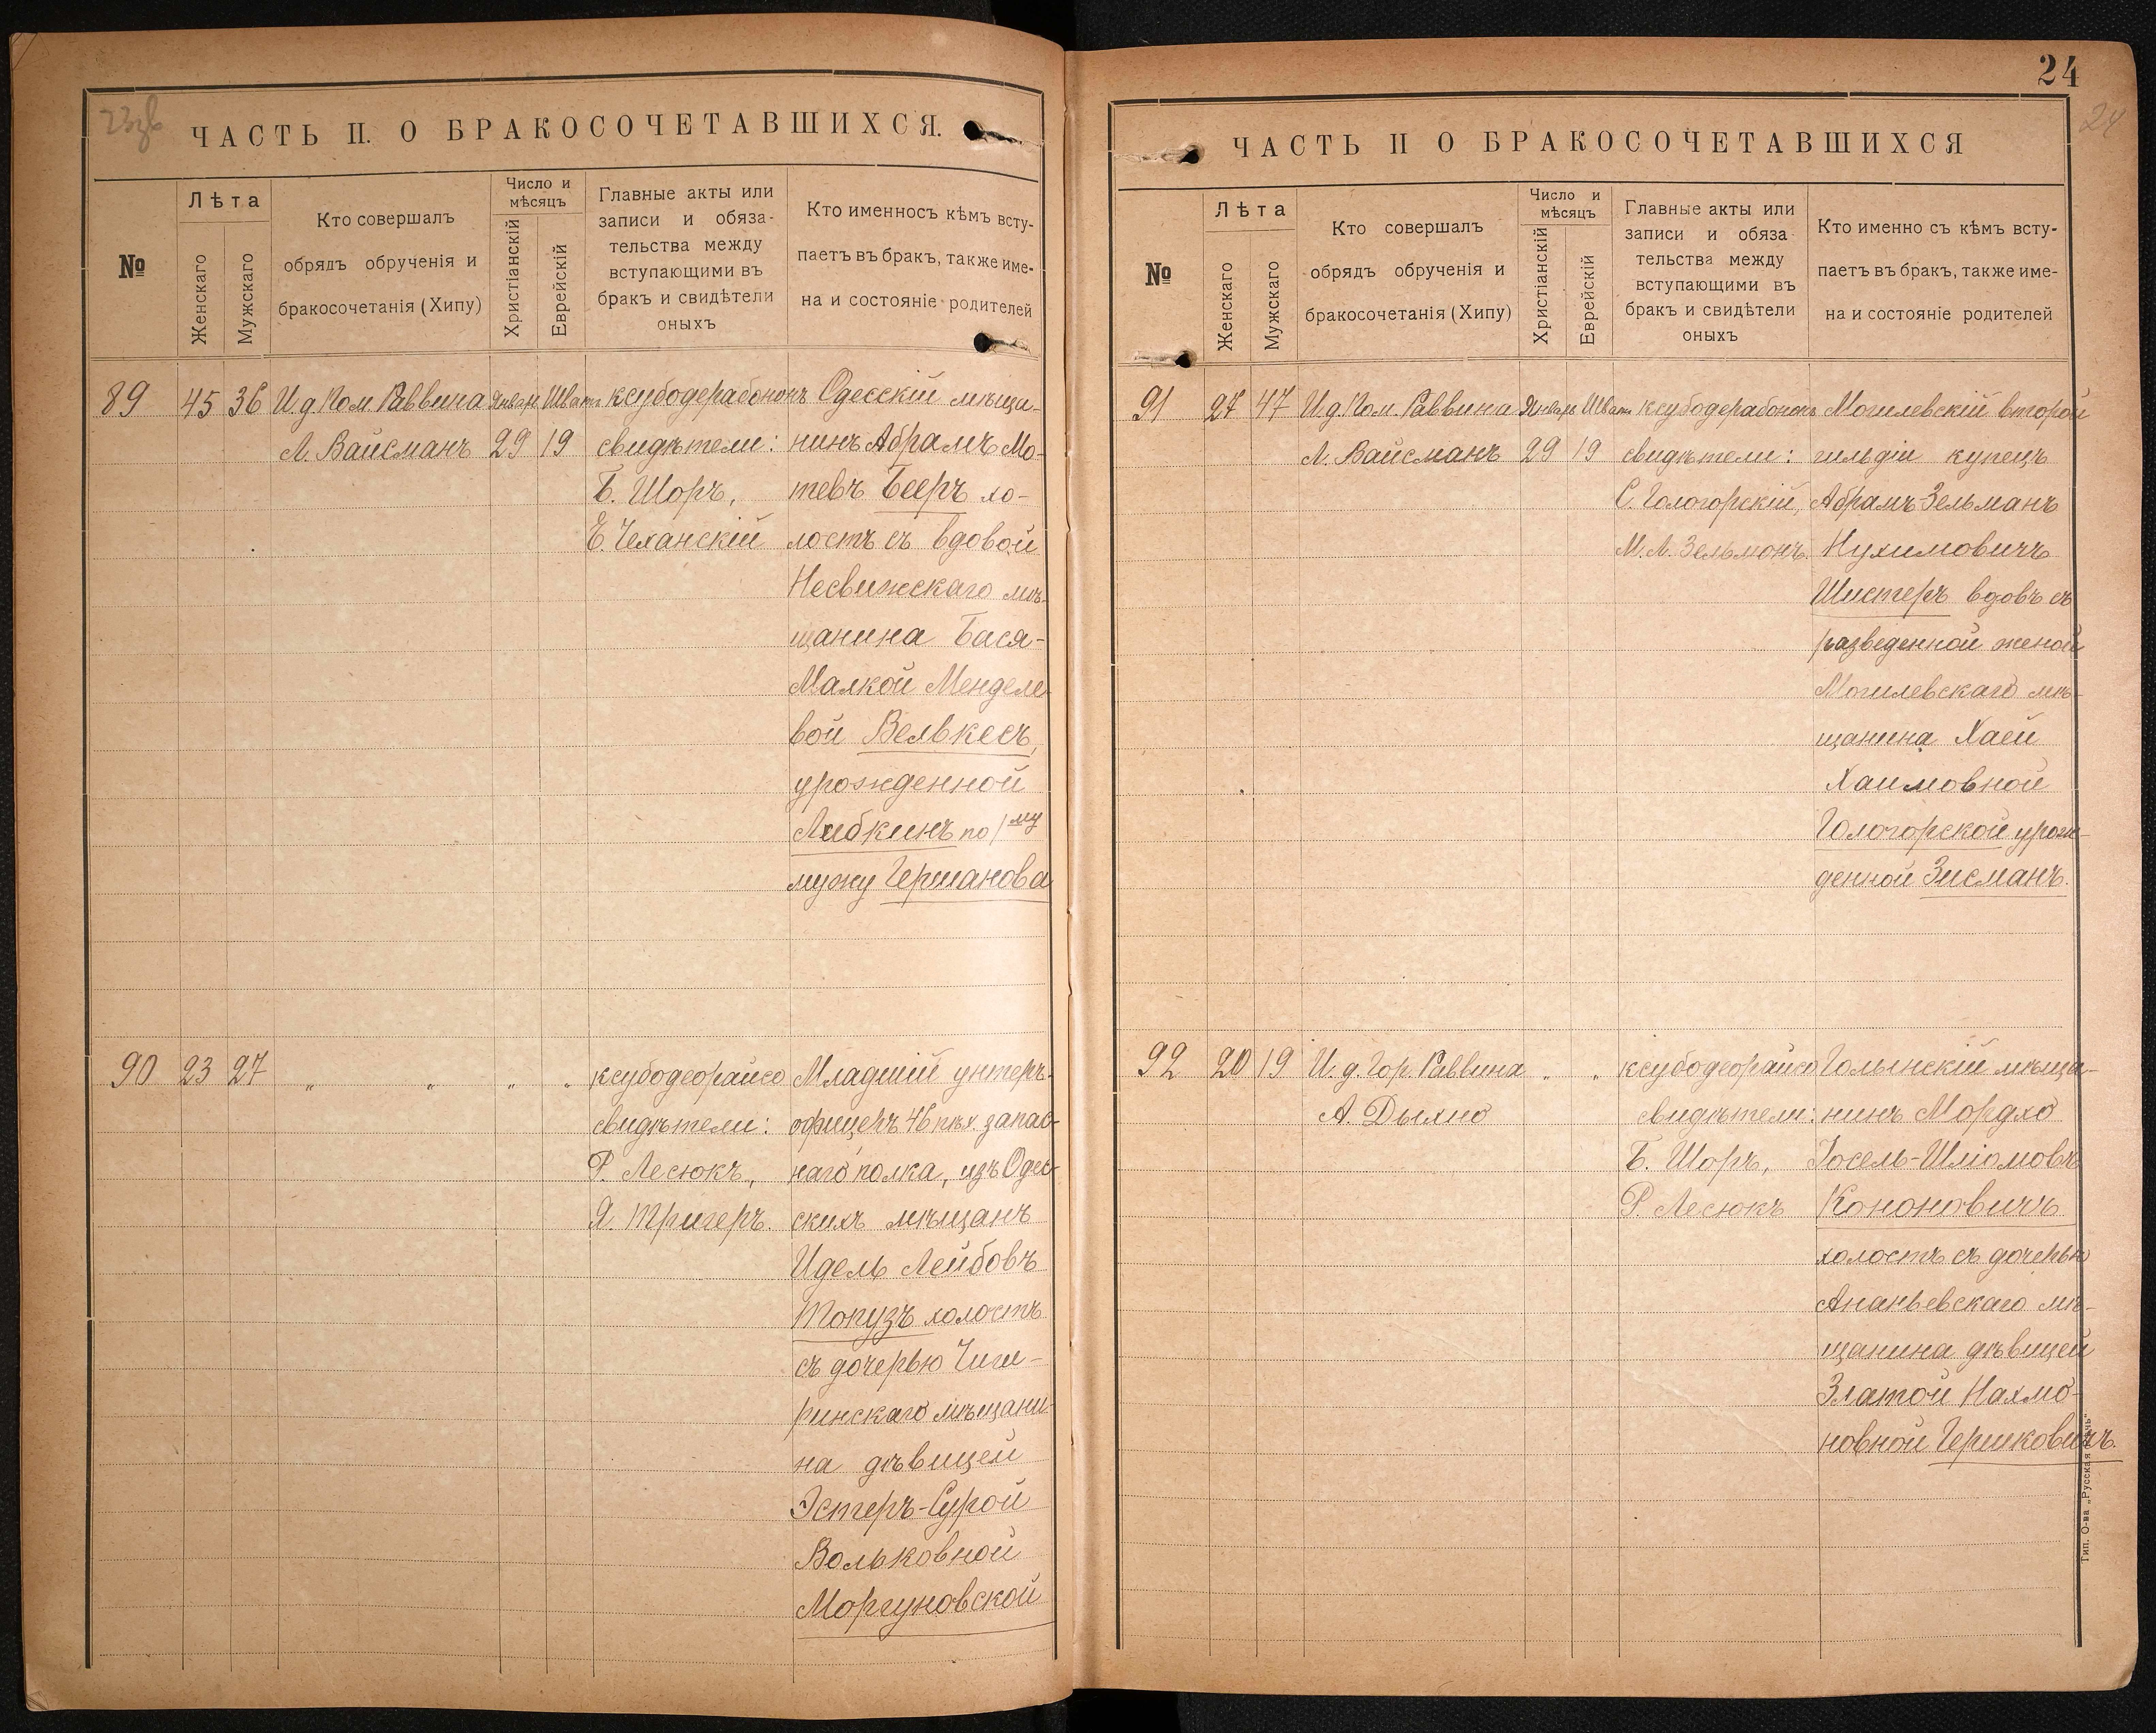 23об
ЧАСТЬ II. О БРАКОСОЧЕТАВШИХСЯ.
№
Лѣта
Женскаго
Мужскаго
Кто совершалъ
обрядъ обрученія и
бракосочетанія (Хипу)
Число и
мѣсяцъ
Христіанскій
Еврейскій
Главные акты или
записи и обяза-
тельства между
вступающими въ
бракъ и свидѣтели
оныхъ
Кто именносъ кѣмъ всту-
паетъ въ бракъ, также име-
на и состояніе родителей
89
45
36
И.д Пом Раввина
Л. Вайсманъ
Январь
29
Шватъ
19
ксубодерабононъ
свидѣтели:
Б. Шоръ,
Е. Чеханскій
Одесскій мѣща-
нинъ Абрамъ Мо-
тевъ Бееръ хо-
лостъ съ вдовой
Несвижскаго мѣ-
щанина Бася-
Малкой Менделе-
вой Вельвкесъ,
урожденной
Либкинъ по 1му
мужу Германова
90
23
27
„ „ „ „
ксубодеорайсо
свидѣтели:
Р. Лесюкъ,
Я. Тригеръ.
Младшій унтеръ-
офицеръ 46 пѣх. запас-
наго полка, изъ Одес-
скихъ мѣщанъ
Идель Лейбовъ
Топузъ холостъ
съ дочерью Чиги-
ринскаго мѣщани-
на дѣвицей
Эстеръ-Сурой
Вольковной
Моргуновской
24
24
ЧАСТЬ II О БРАКОСОЧЕТАВШИХСЯ
№
Лѣта
Женскаго
Мужскаго
Кто совершалъ
обрядъ обрученія и
бракосочетанія (Хипу)
Число и
мѣсяцъ
Христіанскій
Еврейскій
Главные акты или
записи и обяза
тельства между
вступающими въ
бракъ и свидѣтели
оныхъ
Кто именно съ кѣмъ всту-
паетъ въ бракъ, также име-
на и состояніе родителей
91
27
47
И.д. Пом. Раввина
Л. Вайсманъ
Январь
29
Шватъ
19
ксубодерабононъ
свидѣтели:
С. Гологорскій,
М. Л. Зельмонъ.
Могилевскій второй
гильдіи купецъ
Абрамъ-Зельманъ
Нухимовичъ
Шистеръ вдовъ съ
разведенной женой
Могилевскаго мѣ-
щанина Хаей
Хаимовной
Гологорской урож-
денной Зисманъ.
92
20
19
И. д. Гор. Раввина
А. Дыхно
„ „
ксубодеорайсо
свидѣтели:
Б. Шоръ,
Р. Лесюкъ
Голынскій мѣща-
нинъ Мордхо
Іосель-Шліомовъ
Кононовичъ
холостъ съ дочерью
Ананьевскаго мѣ-
щанина дѣвицей
Златой Нахмо-
новной Гершковичъ.
Тип. О-ва „Русская Рѣчь“